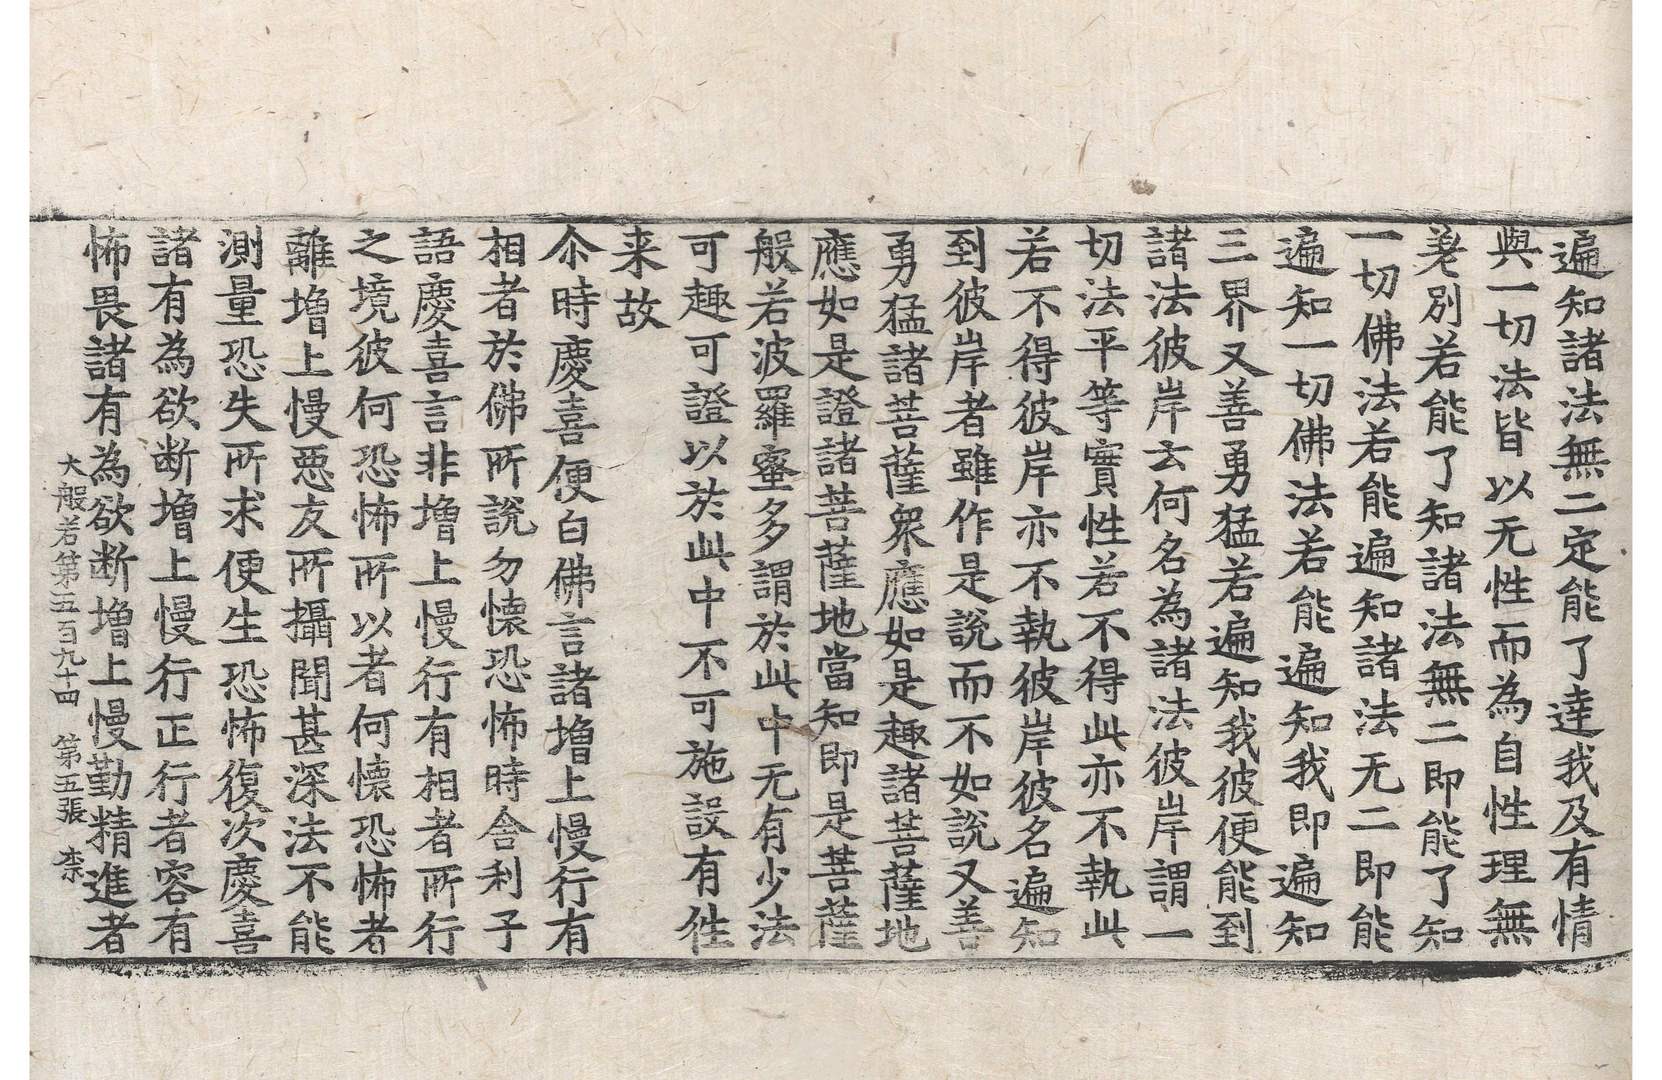 遍知諸法無二定能了達我及有情
與一切法皆以无性而為自性理無
差別若能了知諸法無二即能了知
一切佛法若能遍知諸法无二即能
遍知一切佛法若能遍知我即遍知
三界又善勇猛若遍知我彼便能到
諸法彼岸云何名為諸法彼岸謂一
切法平等實性若不得此亦不執此
若不得彼岸亦不執彼岸彼名遍知
到彼岸者雖作是說而不如說又善
勇猛諸菩薩衆應如是趣諸菩薩地
應如是證諸菩薩地當知即是菩薩
般若波羅蜜多謂於此中无有少法
可趣可證以於此中不可施設有徃
来故
尒時慶喜便白佛言諸增上慢行有
相者於佛所說勿懷恐怖時舍利子
語慶喜言非增上慢行有相者所行
之境彼何恐怖所以者何懷恐怖者
離增上慢惡友所攝聞甚深法不能
測量恐失所求便生恐怖復次慶喜
諸有為欲断增上慢行正行者容有
怖畏諸有為欲断增上慢勤精進者
大般若第五百九十四 第五張 李